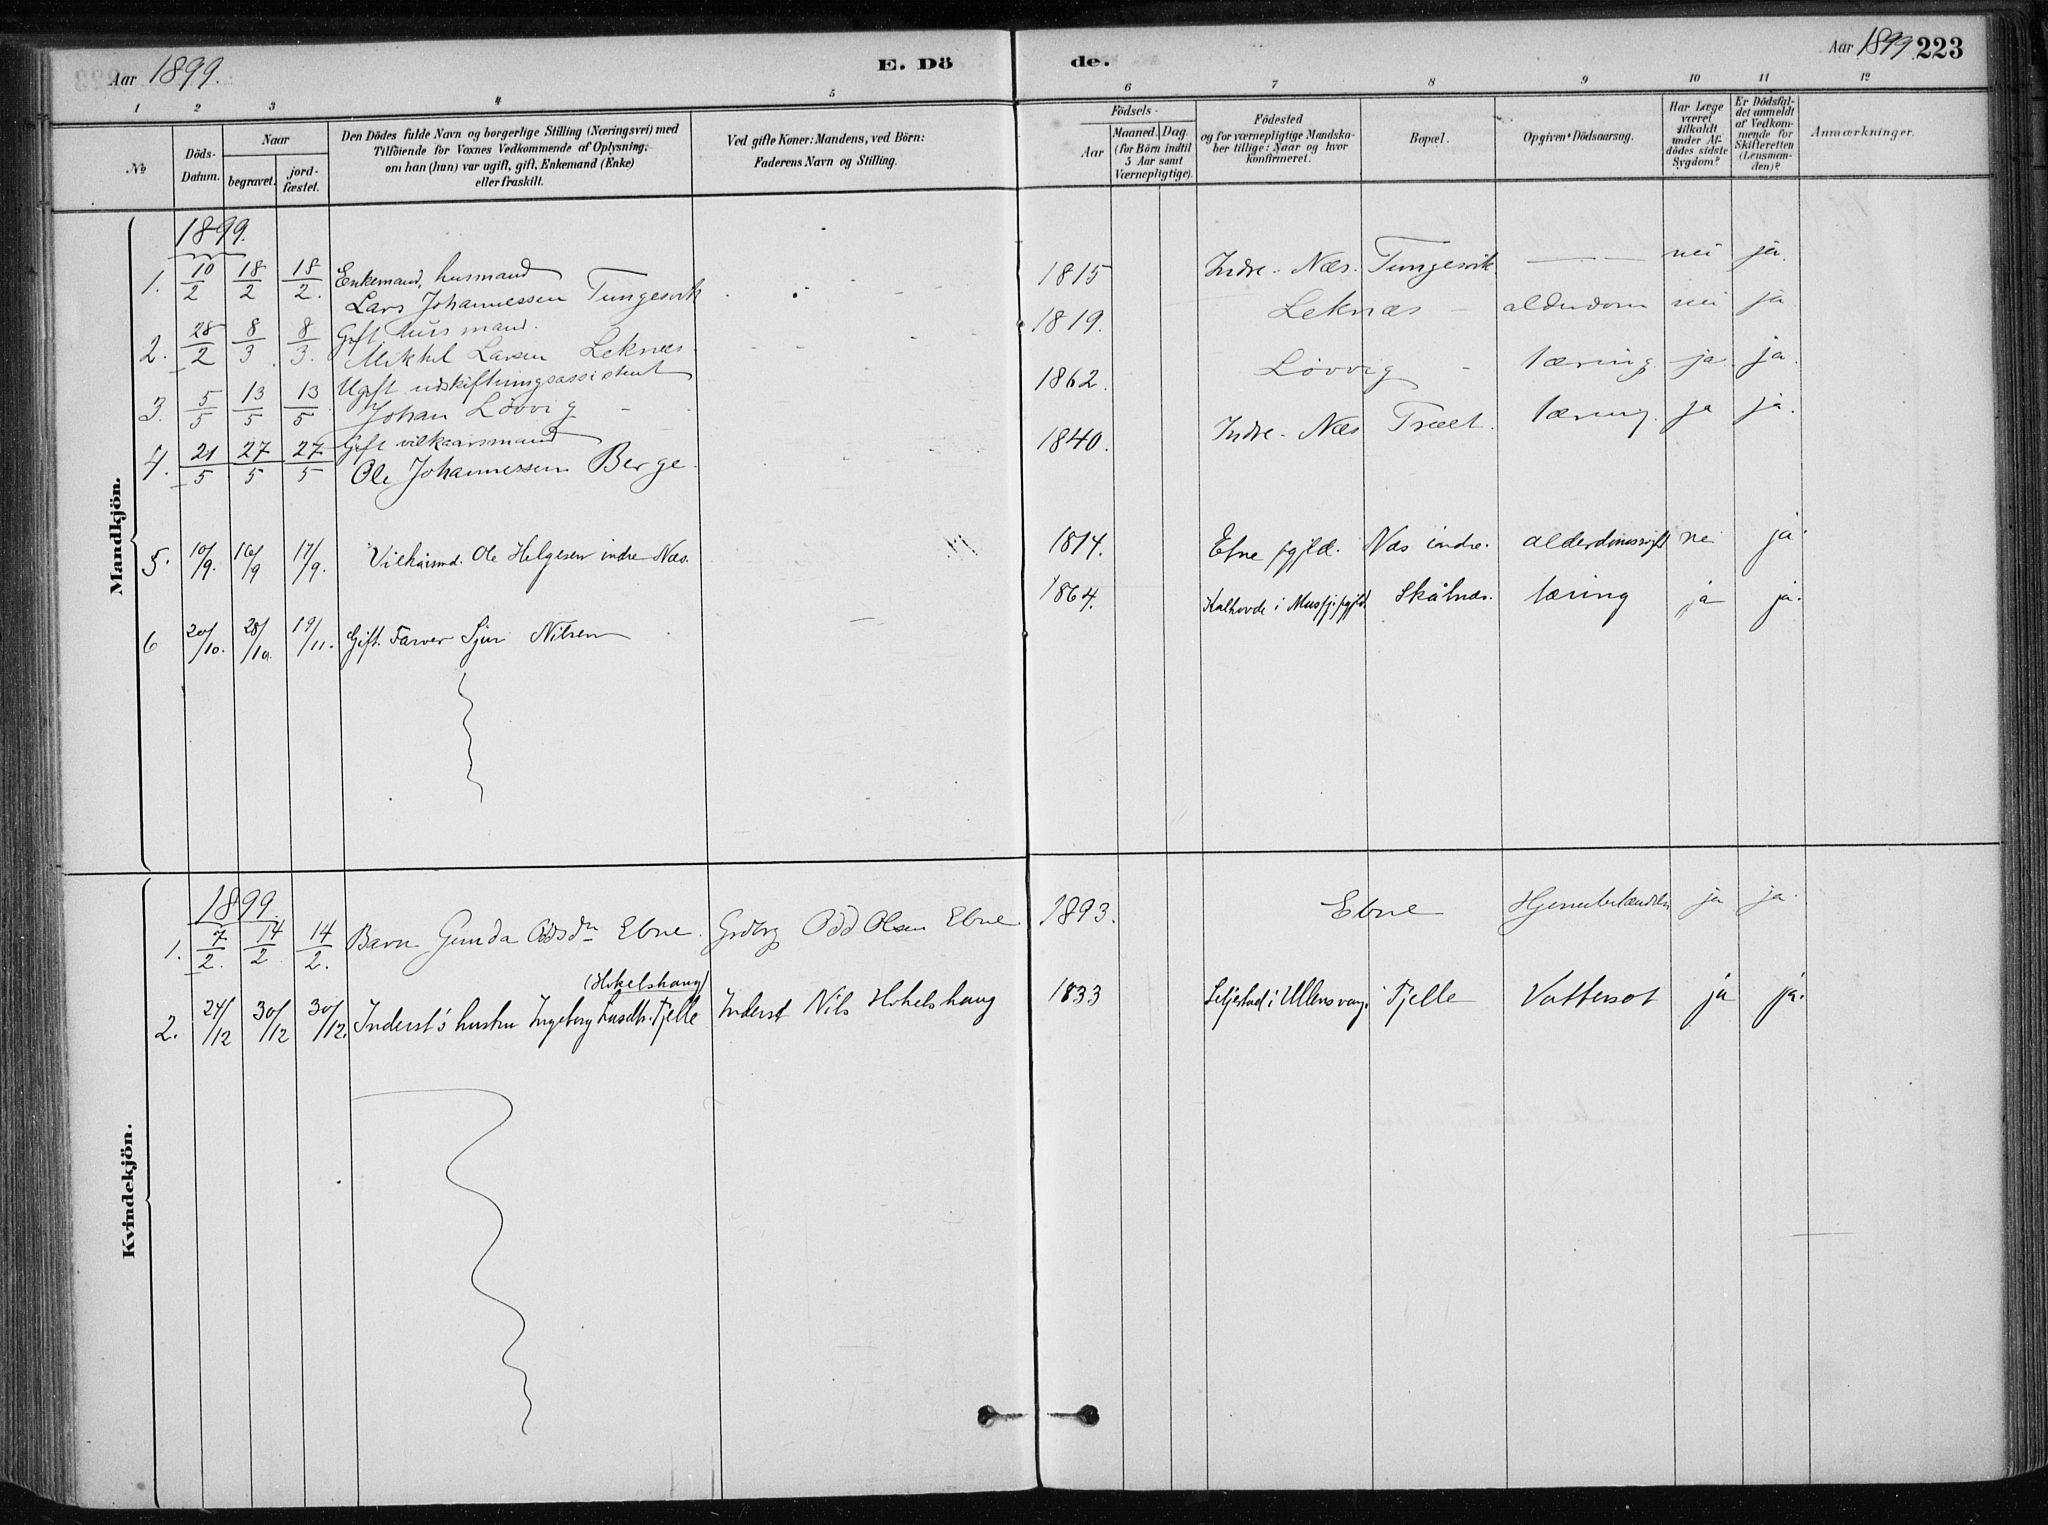 Aar 1899.
E. Dö
de.
Aar 1899. 223
1 2 3 4 5 6 7 8 9 10 11 12
No
Döds-Datum.
Naar
begravet.
jord-fæstet.
Den Dödes fulde Navn og borgerlige Stilling (Næringsvei) med
Tilföiende for Voxnes Vedkommende af Oplysning,
om han (hun) var ugift, gift, Enkemand (Enke)
eller fraskilt.
Ved gifte Koner: Mandens, ved Börn:
Faderens Navn og Stilling.
Födsels-
Aar
Maaned. Dag.
(for Börn indtil
5 Aar samt
Værnepligtige).
Födested
og for værnepligtige Mandska-
ber tillige: Naar og hvor
konfirmeret.
Bopæl.
Opgiven Dödsaarsag.
Har Læge
været
tilkaldt
under Af-
dödes sidste
Sygdom?
Er Dödsfal-
det anmeldt
af Vedkom-
mende for
Skifteretten
(Lensman-
den)?
Anmærkninger.
Mandkjön.
1899.
1. 10/2 18/2 18/2. Enkemand, husmand
Lars Johannessen Tungesvik 1815 Indre-Næs. Tungesvik — nei ja.
2. 28/2 8/3 8/3. Gift husmand.
Mikkel Larsen Leknes 1819. Leknæs - alderdom nei ja
3. 5/5 13/5 13/5 Ugift udskiftningsassistent
Johan Lövvig - 1862. Lövvig - tæring ja ja.
4. 21/5 27/5 27/5 Gift vilkaarsmand
Ole Johannessen Berge. 1840. Indre-Næs Træet. tæring. ja ja.
5. 10/9. 16/9 17/9. Vilkårsmd. Ole Helgesen indre Næs. 1814. Etne pgjld. Næs indre. nei ja
6 20/10. 28/10. 19/11. Gift. Farver Sjur Nilsen 1864. Kalhovde i Skålnæs. tæring ja ja.
Kvindekjön.
1899.
1. 7/2. 14/2 14/2. Barn Gunda Odsdtr Ebne. Grdbrg Odd Olsen Ebne 1893. Ebne ja ja.
2. 24/12 30/12 30/12. Inderst's hustru Ingeborg Fjelle
(Hokelshaug)
Inderst Nils Hokelshaug 1833 i Ullensvang. Fjelle Vattersot ja ja.